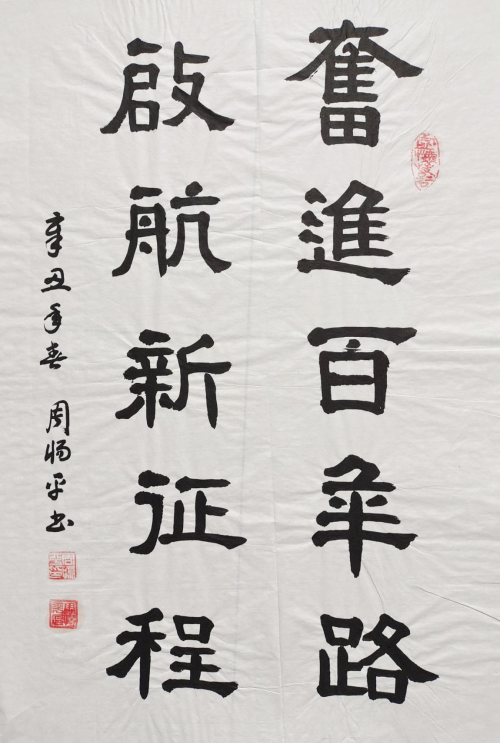 奮進百年路
啟航新征程
辛丑年春 周楊平书